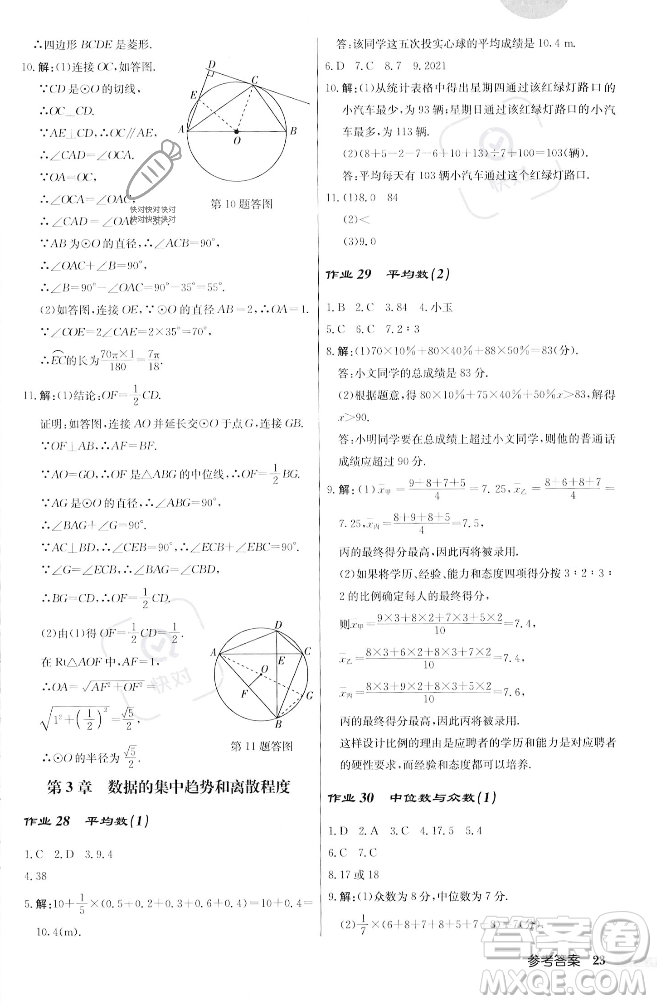 ∴四边形 BCDE 是菱形.
10.解:(1)连接 OC,如答图.
∵CD 是⊙O 的切线,
∴OC⊥CD.
∵AE⊥CD,∴AE∥OC.
∴∠CAD=∠ACO.
∵OA=OC,
∴∠OCA=∠OAC.
∴∠CAD=∠OAC
∵AB 为⊙O 的直径,∴∠ACB=90°.
∴∠OAC+∠B=90°.
∴∠CAD+∠B=90°.
(2)如答图,连接 OE,∵∠CAD=∠OAC=
∵∠COE=2∠CAE=2×35°=70°.
∴EC的长为70π×1/180=7π/18.
第 10 题答图
11.解:(1)结论:OF=1/2CD.
证明:如答图,连接 AO 并延长交⊙O 于点 G,连接 GB.
∵OF⊥AB,∴AF=BF.
∵AO=GO,∴OF 是△ABG 的中位线.∴OF=1/2BG.
∵AG 是⊙O 的直径,∴∠ABG=90°.
∴∠BAG+∠G=90°.
∵AC⊥BD,∴∠AEB=90°.∴∠ACB+∠EBC=90°.
∵∠G=∠ACB,∴∠BAG=∠EBC.
∴BG=CD.∴OF=1/2CD.
(2)由(1)得 OF=1/2CD=1/2.
在 Rt△AOF 中,
∴OA=√(AF²+OF²)=
√(1²+(1/2)²)=√5/2,
∴⊙O 的半径为√5/2.
第 11 题答图
第 3 章 数据的集中趋势和离散程度
作业 28 平均数(1)
1.C 2.D 3.9.4
4.38
5.解:10+1/5×(0.5+0.2+0.3+0.6+0.4)=10+0.4=
10.4(m).
答:该同学这五次投实心球的平均成绩是 10.4 m.
6.D 7.C 8.7 9.2021
10.解:(1)从统计表格中得出星期四通过该红绿灯路口的
小汽车最少,为 93 辆;星期日通过该红绿灯路口的小汽
车最多,为 113 辆.
(2)(8+5-2-7+6+13-2)÷7+100=103(辆).
答:平均每天有 103 辆小汽车通过这个红绿灯路口.
11.(1)8.0 84
(2)<
(3)9.0
作业 29 平均数(2)
1.B 2.C 3.84 4.小玉
5.C 6.C 7.2∶3
8.解:(1)70×10%+80×40%+88×50%=83(分).
答:小文同学的总成绩是 83 分.
(2)根据题意,得 80×10%+75×40%+50%x>83,解得
x>90.
答:小明同学要在总成绩上超过小文同学,他的普通话
成绩应超过 90 分.
9.解:(1)x̄甲=(9+8+7+5)/4=7.25,x̄乙=(8+6+8+7)/4=
7.25,x̄丙=(8+9+8+5)/4=7.5,
丙的最终得分最高,因此丙将被录用.
(2)如果将学历、经验、能力和态度四项得分按 3∶2∶3∶
2 的比例确定每人的最终得分,
则x̄甲=(9×3+8×2+7×3+5×2)/10=7.4,
x̄乙=(8×3+6×2+8×3+7×2)/10=7.4,
x̄丙=(8×3+9×2+8×3+5×2)/10=7.6,
丙的最终得分最高,因此丙将被录用.
这样设计比例的理由是应聘者的学历和能力应为应聘者
的硬性要求,而经验和态度可以培养.
作业 30 中位数与众数(1)
1.D 2.A 3.C 4.17.5 5.4
6.D 7.C
8.17 或 18
9.解:(1)众数为 8 分,中位数为 7 分.
(2)1/7×(6+8+7+8+5+7+8)=7(分).
参考答案 23
快对快对快对
快对快对快对
快对
快对
作业精灵